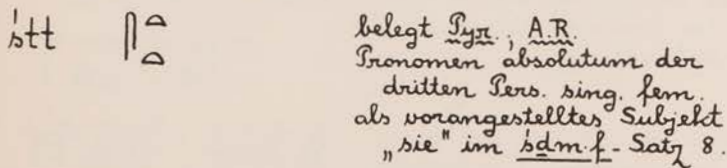 śtt 𓋴𓏏𓏏 belegt Pyr.; A.R.
Pronomen absolutum der
dritten Pers. sing. fem.
als vorangestelltes Subjekt
„sie" im śdm.f - Satz 8.